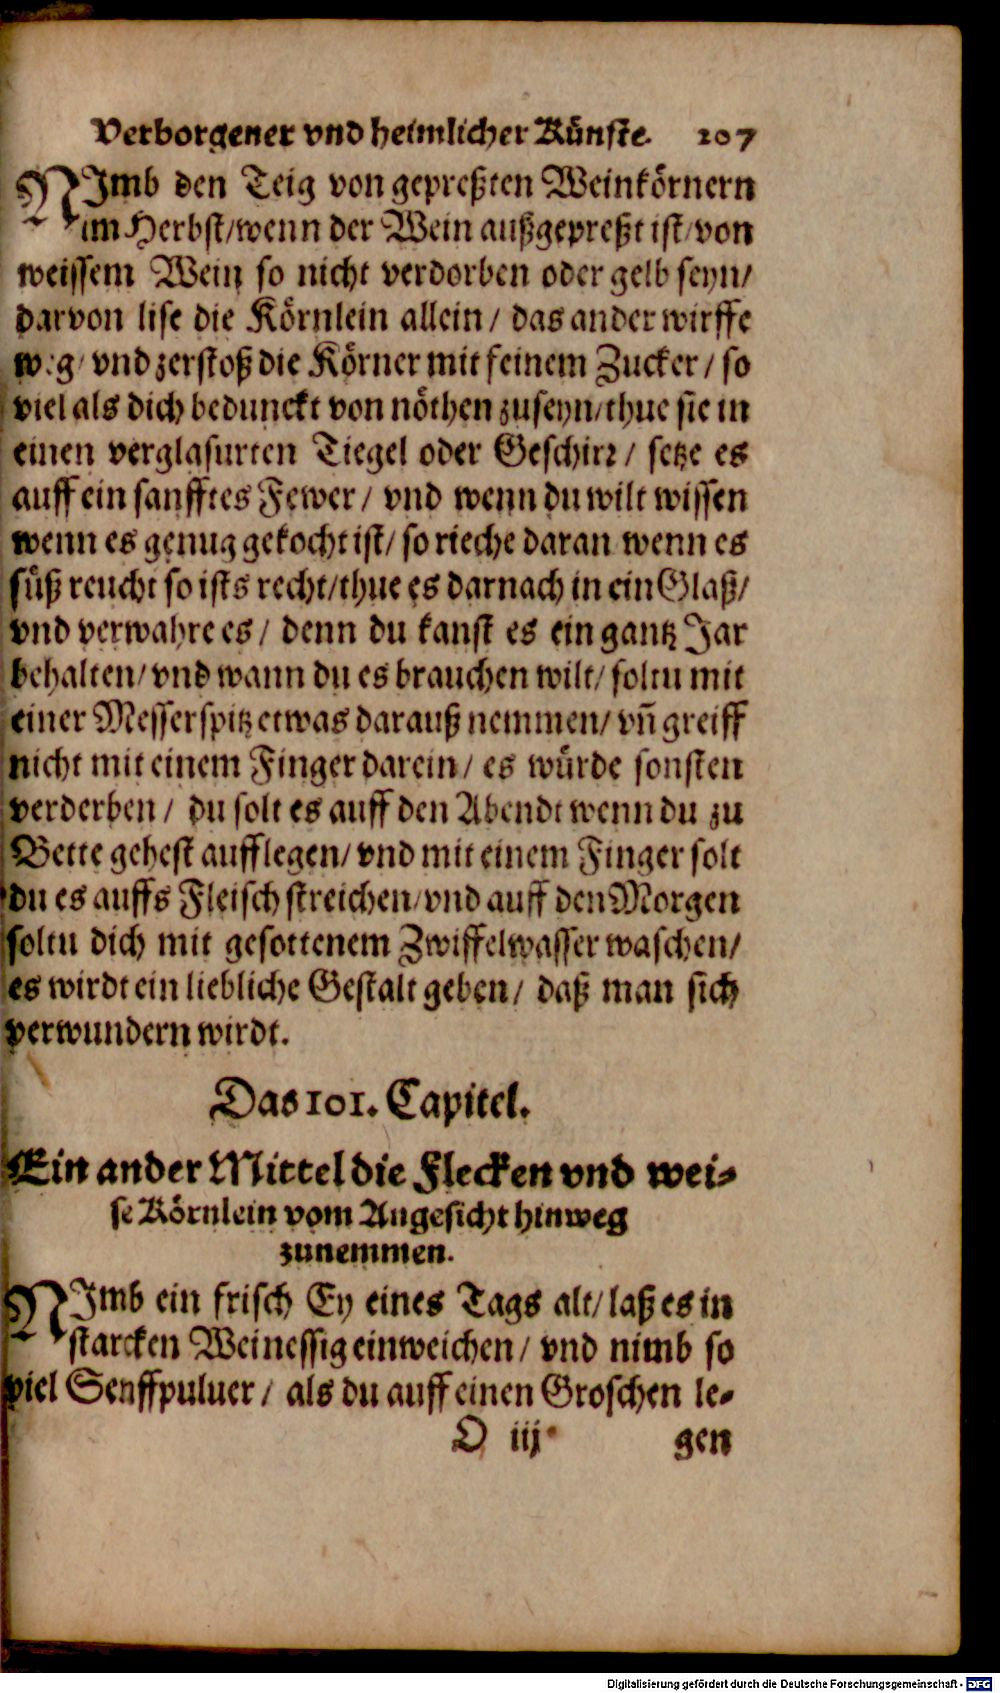 Verborgener vnd heimlicher Künste. 207
NImb den Teig von gepreßten Weinkörnern
im Herbst/wenn der Wein außgepreßt ist/von
weissem Wein so nicht verdorben oder gelb seyn/
darvon lise die Körnlein allein / das ander wirffe
weg/ vnd zerstoß die Körner mit feinem Zucker / so
viel als dich bedunckt von nöthen zuseyn/thue sie in
einen verglasurten Tiegel oder Geschirr / setze es
auff ein sanfftes Fewer / vnd wenn du wilt wissen
wenn es genug gekocht ist/ so rieche daran wenn es
süß reucht so ists recht/thue es darnach in ein Glaß/
vnd verwahre es / denn du kanst es ein gantz Jar
behalten/ vnd wann du es brauchen wilt/ soltu mit
einer Messerspitz etwas darauß nemmen/ vñ greiff
nicht mit einem Finger darein/ es würde sonsten
verderben / du solt es auff den Abendt wenn du zu
Bette gehest aufflegen/ vnd mit einem Finger solt
du es auffs Fleisch streichen/vnd auff den Morgen
soltu dich mit gesottenem Zwiffelwasser waschen/
es wirdt ein liebliche Gestalt geben / daß man sich
verwundern wirdt.
Das 101. Capitel.
Ein ander Mittel die Flecken vnd wei-
se Körnlein vom Angesicht hinweg
zunemmen.
NImb ein frisch Ey eines Tags alt/ laß es in
starcken Weinessig einweichen / vnd nimb so
viel Senffpuluer / als du auff einen Groschen le-
O iij gen
Digitalisierung gefördert durch die Deutsche Forschungsgemeinschaft - DFG